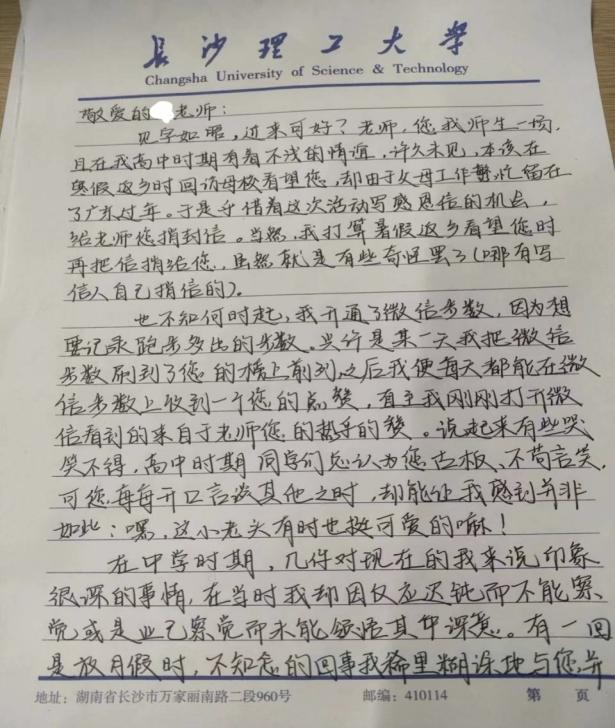 长沙理工大学
Changsha University of Science & Technology
敬爱的 老师：
见字如晤，近来可好？老师，您我师生一场，
且在我高中时期有着不浅的情谊，许久未见，本该在
寒假返乡时回访母校看望您，却由于父母工作繁忙留在
了广东过年。于是乎借着这次活动写感恩信的机会，
给老师您捎封信。当然，我打算暑假返乡看望您时
再把信捎给您，虽然就是有些奇怪罢了（哪有写
信人自己捎信的）。
也不知何时起，我开通了微信步数，因为想
要记录跑步多出的步数。兴许是某一天我把微信
步数刷到了您的榜上前列，之后我便每天都能在微
信步数上收到一个您的点赞，直至我刚刚打开微
信看到的来自于老师您的热乎的赞。说起来有些哭
笑不得，高中时期同学们总认为您古板、不苟言笑，
可您每每开口言谈其他之时，却能让我感到并非
如此：嘿，这小老头有时也挺可爱的嘛！
在中学时期，几件对现在的我来说印象
很深的事情，在当时我却因反应迟钝而不能察
觉或是业已察觉而未能领悟其中深意。有一回
是放月假时，不知怎的回事我稀里糊涂地与您并
地址：湖南省长沙市万家丽南路二段960号 邮编：410114 第 页